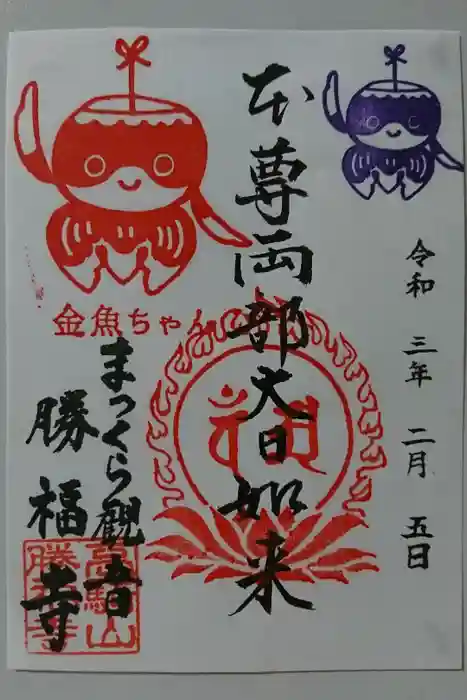 令和 三年 二月 五日
本尊両部大日如来
金魚ちゃん
まっくら観音
勝福寺